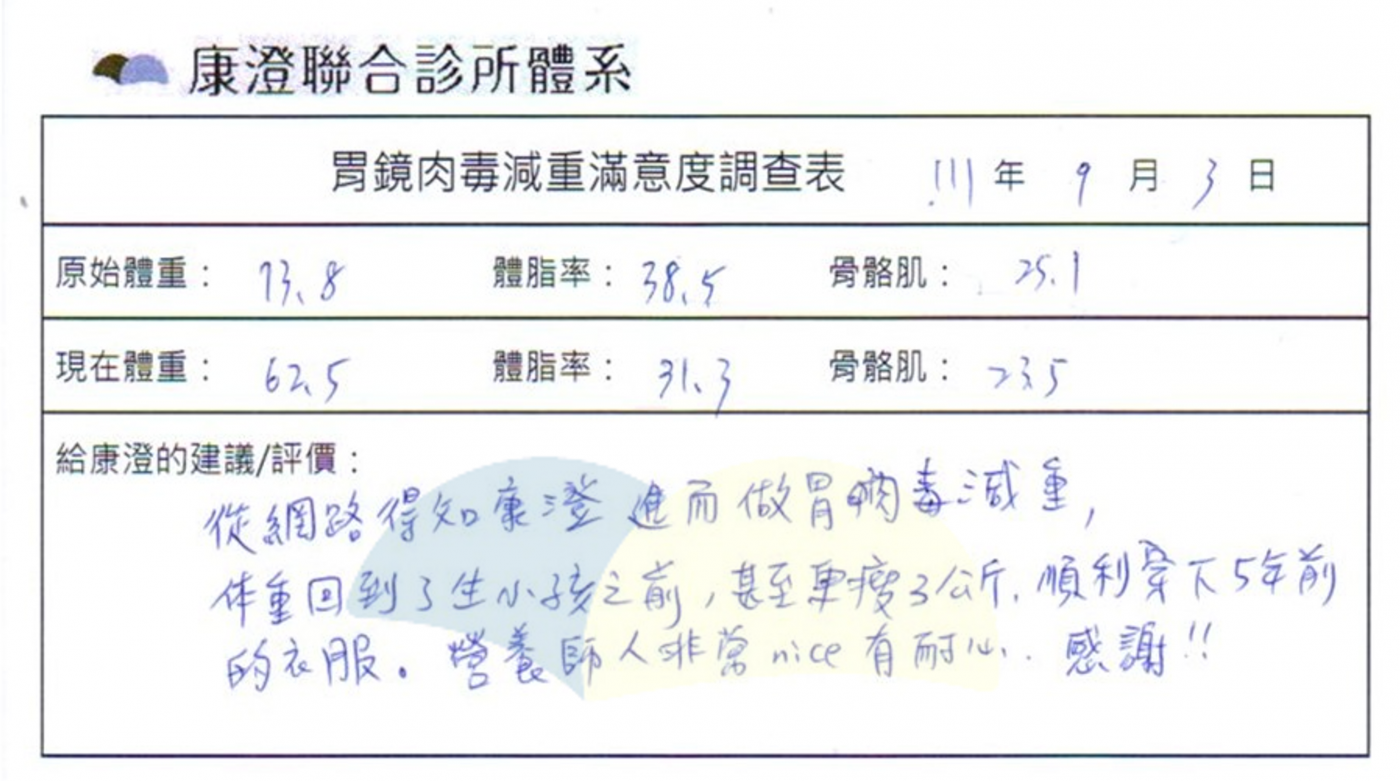 康澄聯合診所體系
胃鏡肉毒減重滿意度調查表 111年 9月 3日
原始體重： 73.8 體脂率： 38.5 骨骼肌： 25.1
現在體重： 62.5 體脂率： 31.3 骨骼肌： 23.5
給康澄的建議/評價：
從網路得知康澄進而做胃肉毒減重,
体重回到了生小孩之前,甚至更瘦3公斤.順利穿下5年前
的衣服。營養師人非常nice有耐心.感謝!!